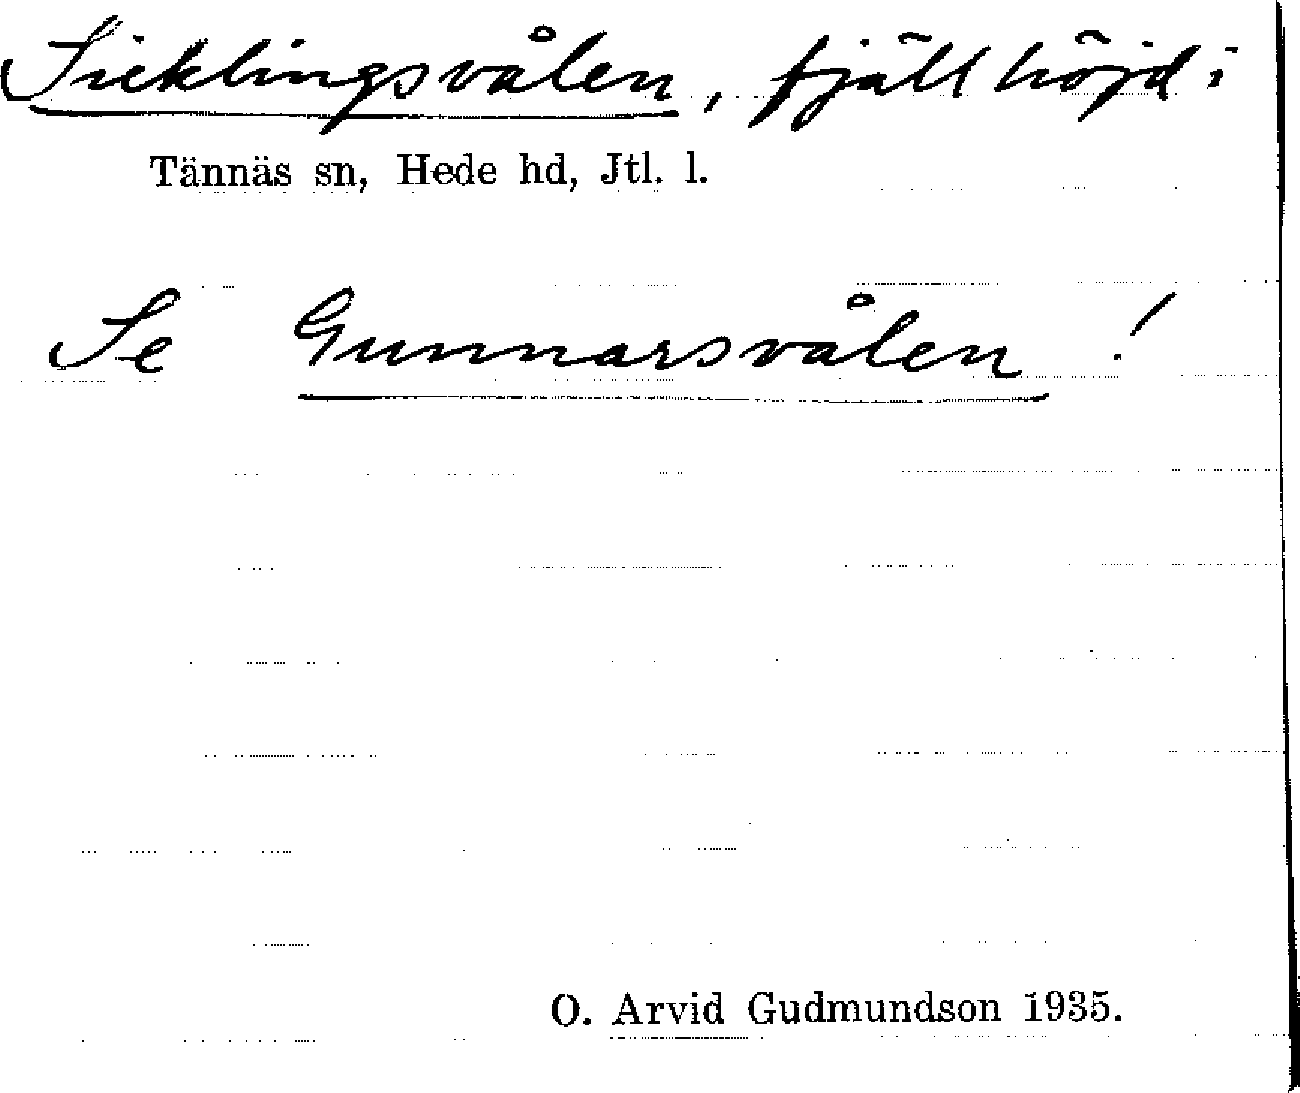 Sicklingsvålen, fjällhöjd i
Tännäs sn, Hede hd, Jtl. l.
Se Gunnarsvålen!
O. Arvid Gudmundson 1935.